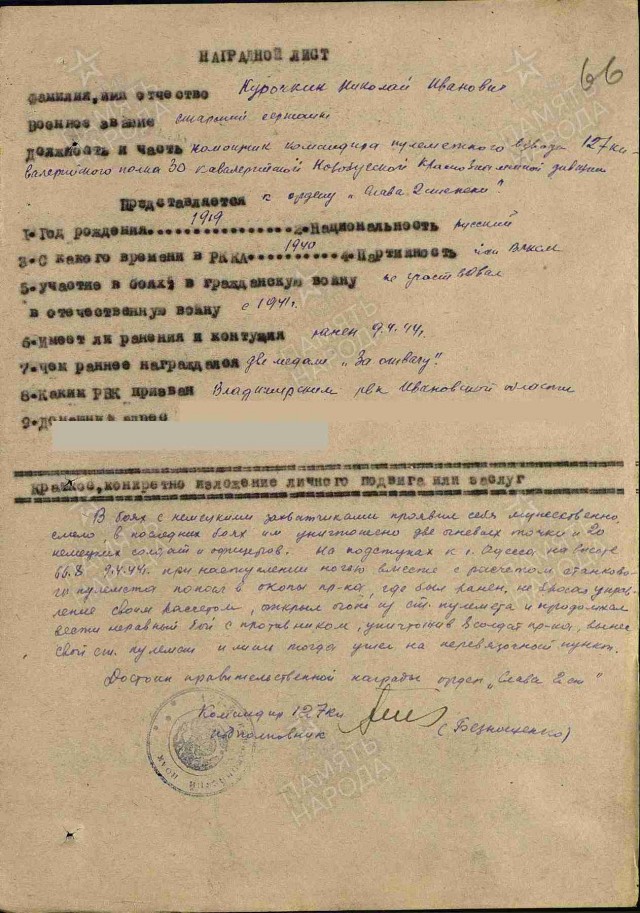 66
НАГРАДНОЙ ЛИСТ
Фамилия, имя отчество Курочкин Николай Иванович
Военное звание старший сержант
Должность и часть помощник командира пулеметного взвода 127 ка-
валерийского полка 30 кавалерийской Новобугской Краснознаменной дивизии
Представляется к ордену „Слава 2 степени".
1•Год рождения 1919 2•Национальность русский
3•С какого времени в РККА 1940 4•Партийность член ВЛКСМ
5•участие в боях: в гражданскую войну не участвовал
в отечественную войну с 1941г.
6•Имеет ли ранения и контузия ранен 9.4.44г.
7•чем раннее награждался две медали „За отвагу".
8•Каким РВК призван Владимирским рвк Ивановской области
9•Домашний адрес
Краткое, конкретно изложение личного подвига или заслуг
В боях с немецкими захватчиками проявил себя мужественно,
смело, в последних боях им уничтожено две огневых точки и 20
немецких солдат и офицеров. На подступах к г. Одесса, на высоте
66.8 9.4.44г. при наступлении ночью вместе с расчетом станково-
го пулемета попал в окопы пр-ка, где был ранен, не бросая управ-
ление своим расчетом, открыл огонь из ст. пулемета и продолжал
вести неравный бой с противником, уничтожив 8 солдат пр-ка, вынес
свой ст. пулемет и лишь тогда ушел на перевязочный пункт.
Достоин правительственной награды орден „Слава 2 ст"
Командир 127 кп
подполковник (Безнощенко)
ПАМЯТЬ НАРОДА